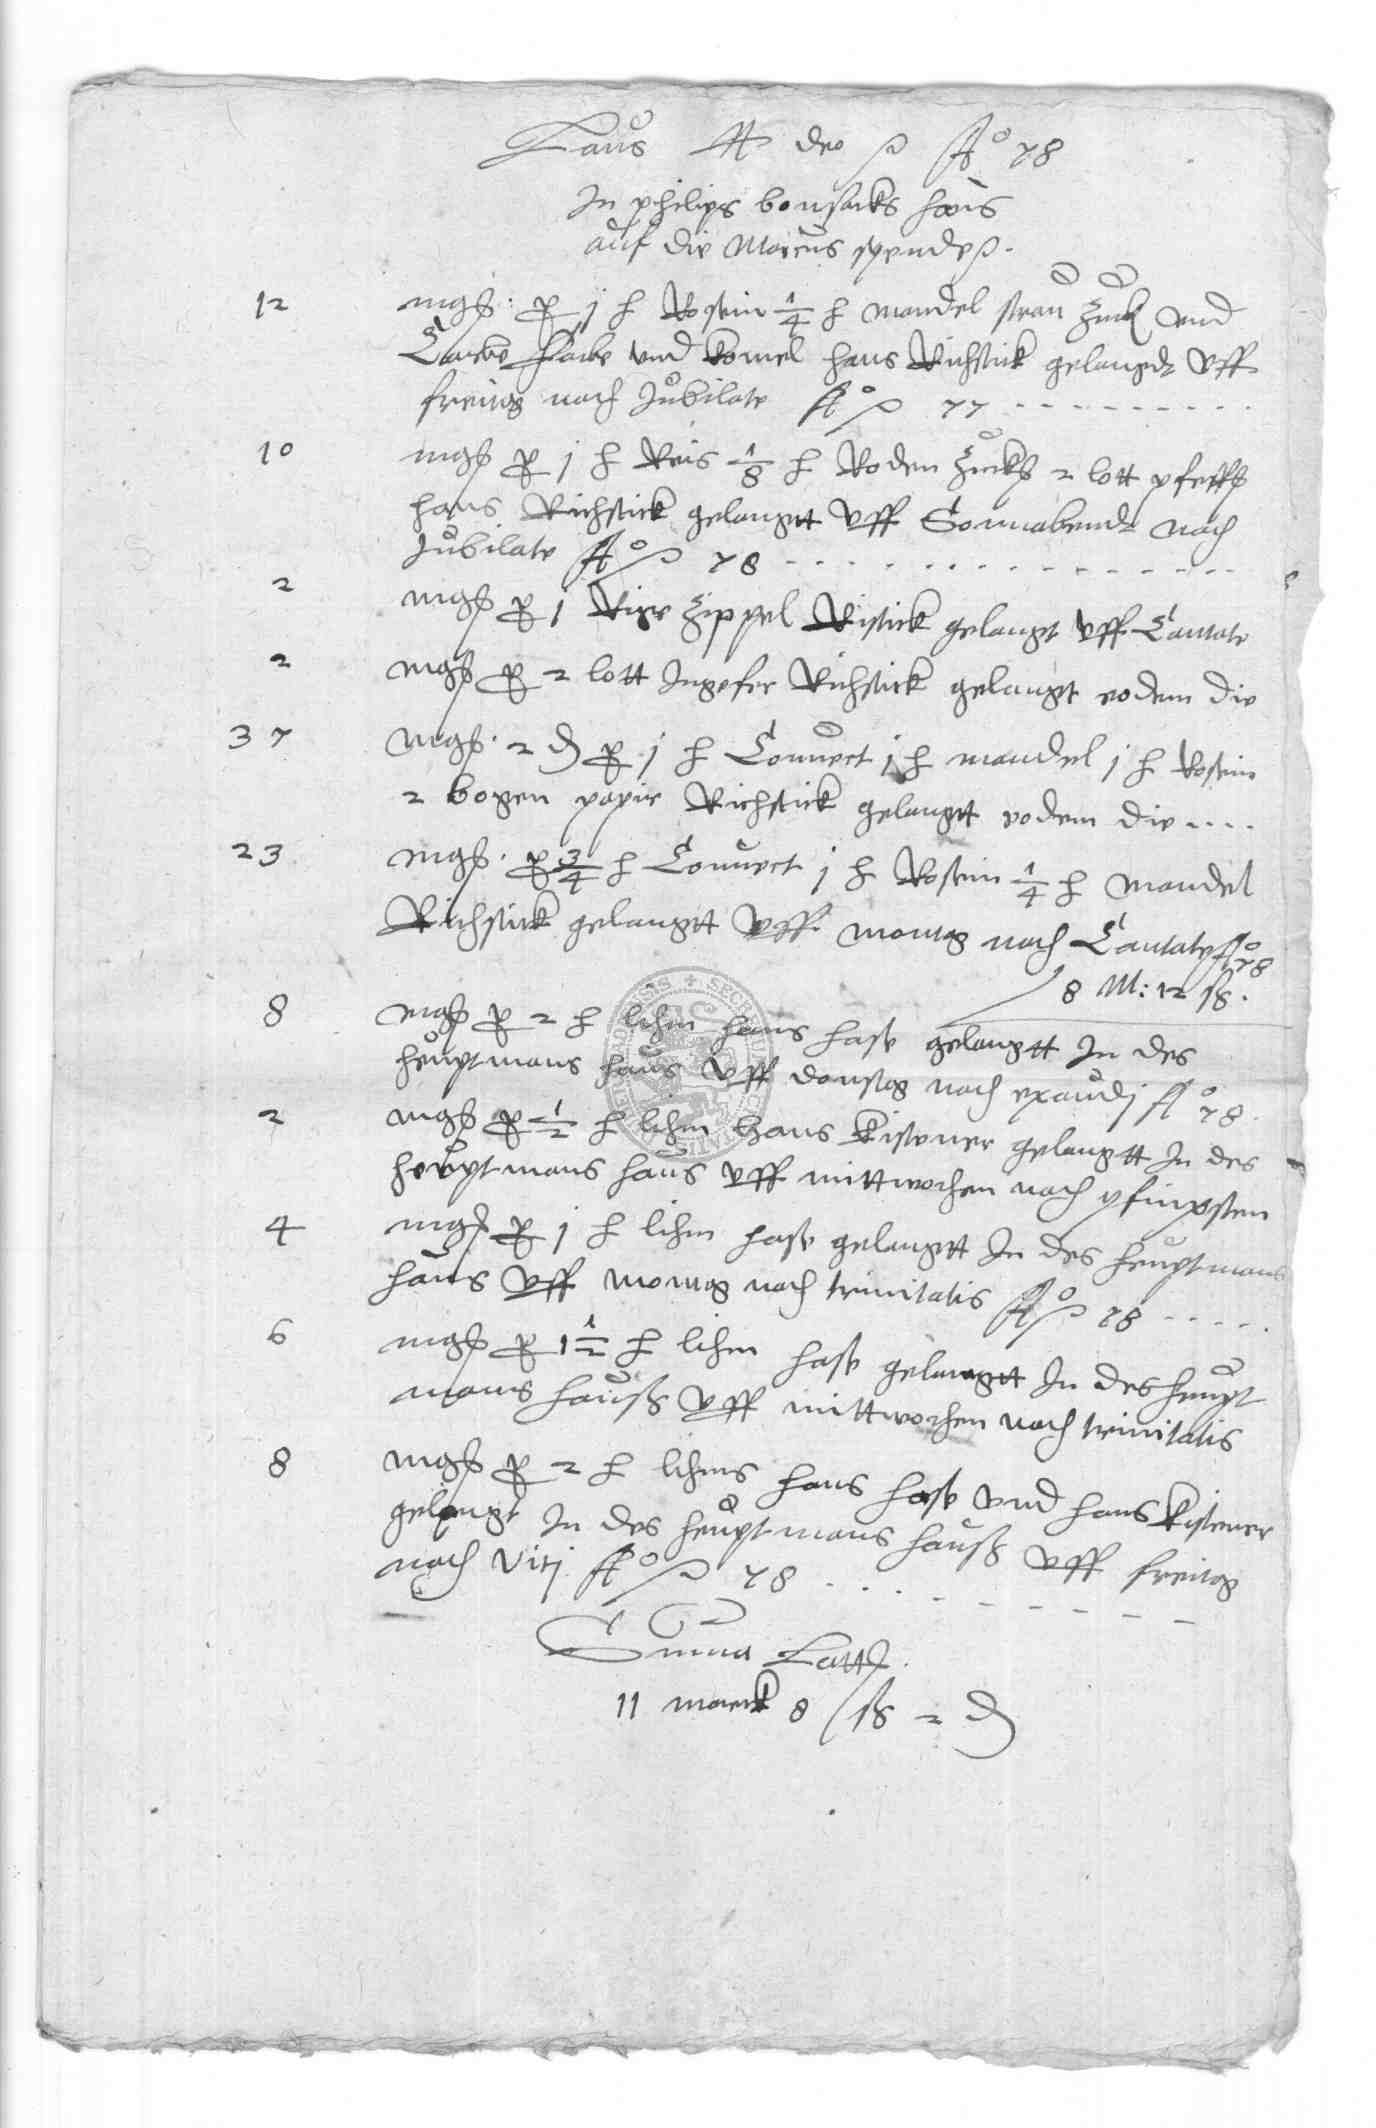 Laus  deo  Ao 78
In philips bonsacks haus
auf die Marcus spende
12 mgß. p j ℔ Rosein 1/4 ℔ mandel  und
 und  hans Richstick gelangdt Uff
freitag nach Jubilate Ao 77
10 mgß p j ℔ Reis 1/8 ℔ Roden  2 lott pfeffß
hans Richstick gelangtt Uff Sonnabendt nach
Jubilate Ao 78
2 mgß p j Riepe Zippel Ristick gelangt Uff Cantate
2 mgß p 2 lott Ingefer Richstick gelangt eodem die
37 mgß. 2 ₰ p j ℔ Confect j ℔ mandel j ℔ Rosein
2 bogen papir Richstick gelangtt eodem die
23 mgß. p 3/4 ℔ Confect j ℔ Rosein 1/4 ℔ mandel
Richstick gelangtt Uff montag nach Cantate Ao 78
8 M: 12 ß.
8 mgß p 2 ℔ lihm hans hase gelangtt In des
heuptmans haus Uff donstag nach exaudj Ao 78.
2 mgß p 1/2 ℔ lihm hans kistener gelangtt In des
heuptmans haus Uff mittwochen nach pfingsten
4 mgß p j ℔ lihm hase gelangtt In des heuptmans
haus Uff montag nach trinitatis Ao 78
6 mgß p 1 1/2 ℔ lihm hase gelangtt In des heupt
mans hauß Uff mittwochen nach trinitatis
8 mgß p 2 ℔ lihms hans hase und hans kistener
gelangt In des heuptmans hauß Uff freitag
nach Vitj Ao 78
Suma Lattß.
11 marck 8 ß 2 ₰